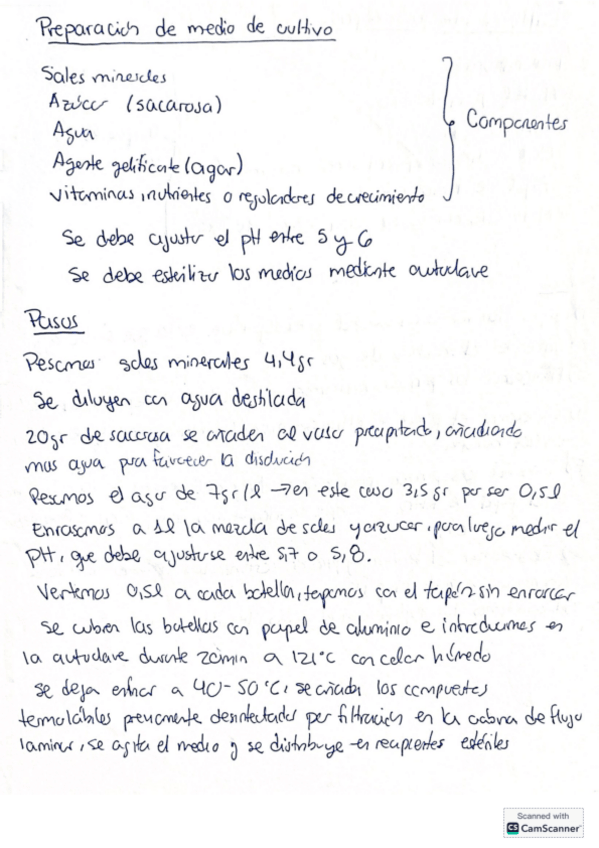 Preparación de medio de cultivo
Sales minerales
Azúcar (sacarosa)
Agua
Agente gelificante (agar)
vitaminas, nutrientes o reguladores de crecimiento
Componentes
Se debe ajustar el pH entre 5 y 6
Se debe esterilizar los medios mediante autoclave
Pasos
Pesamos sales minerales 4,4gr
Se diluyen con agua destilada
20gr de sacarosa se añaden al vaso precipitado, añadiendo
mas agua para favorecer la disolución
Pesamos el agar de 7gr/l → en este caso 3,5 gr por ser 0,5l
Enrasamos a 1l la mezcla de sales y azucar, para luego medir el
pH, que debe ajustarse entre 5,7 o 5,8.
Vertemos 0,5l a cada botella, tapamos con el tapón sin enroscar
Se cubren las botellas con papel de aluminio e introducimos en
la autoclave durante 20min a 121°C con calor húmedo
se deja enfriar a 40-50°C, se añaden los compuestos
termolábiles previamente desinfectados por filtración en la cabina de flujo
laminar, se agita el medio y se distribuye en recipientes estériles
Scanned with
CS CamScanner